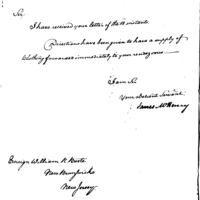 Sir
I have received your letter of the 18 instant.
Directions have been given to have a supply of
clothing forwarded immediately to your rendezvous
I am Sir
Your Obedient Servant
James McHenry
Ensign William R.
New Brunswick
New Jersey